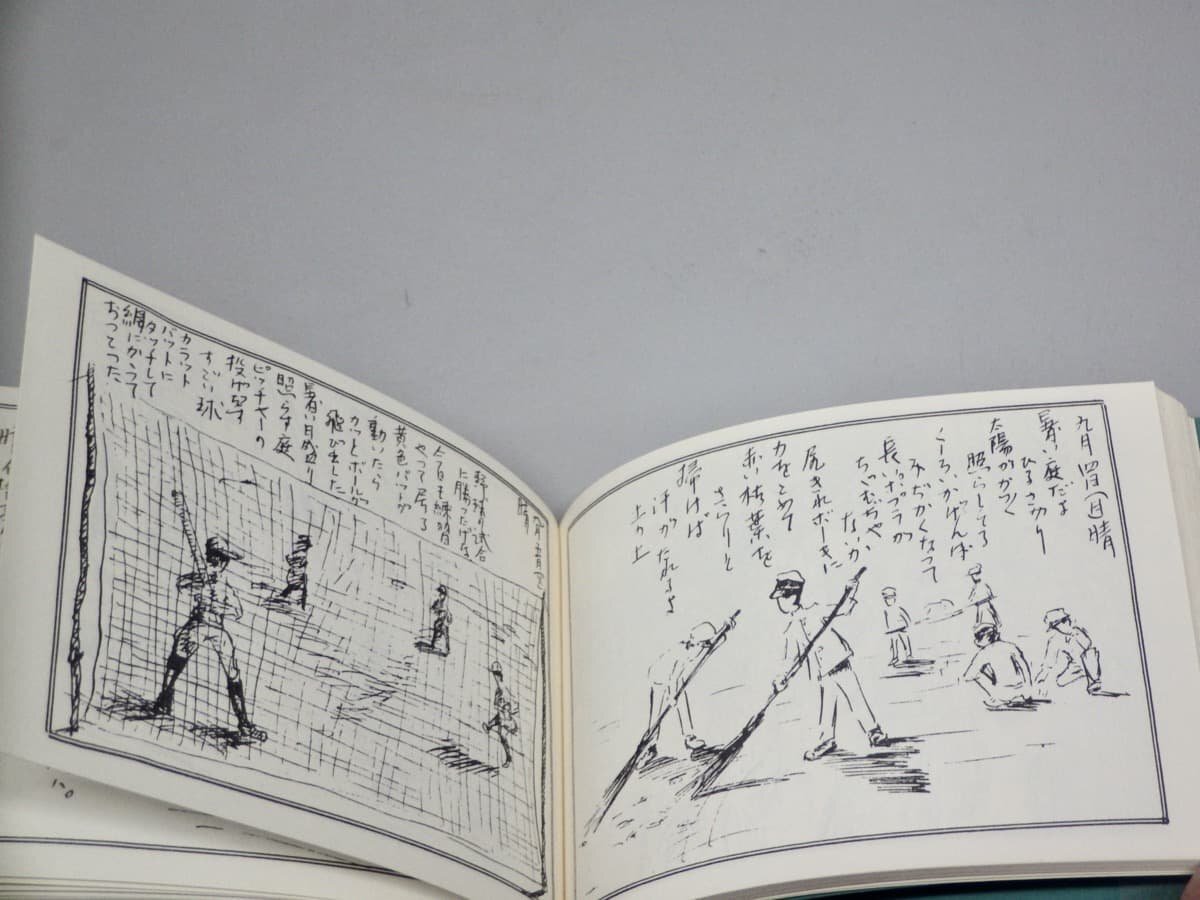 九月四日 晴
暑い庭だよ
ひるさがり
太陽がかつく
照らしてる
くーろいかげんぼ
みぢかくなって
長いポプラが
ちゞむぢや
ないか
尻きれボーキに
力をこめて
赤い枯葉を
さらりと
掃けば
汗がたれるよ
上の上
晴
試合
に勝つたげな
今日も練習
やって居る
黄色バットが
動いたら
カットボールが
飛び出した
暑い日盛り
照らす庭
ピッチャーの
すごい球
カラット
バットに
タッチして
網にかゝって
おつてつた